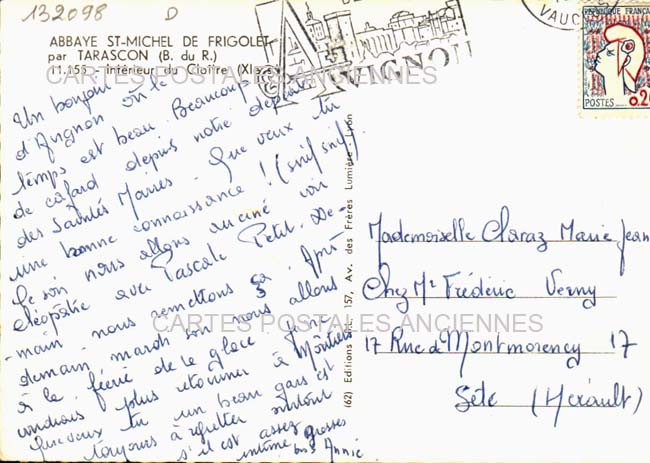 132098 D
ABBAYE ST-MICHEL DE FRIGOLET
par TARASCON (B. du R.)
11.153 - intérieur du Cloître (XIe s.)
CARTES POSTALES ANCIENNES
AVIGNON
VAUC
REPUBLIQUE FRANÇAISE
POSTES
0,20
Un bonjour
d'Avignon où le
temps est beau. Beaucoup
de cafard depuis notre départ
des Saintes Maries - Que veux tu
une bonne connaissance ! (snif snif)
Ce soir nous allons au ciné voir
cléopâtre avec Pascale Petit. De-
main nous remettons ça. Après
demain mardi soir nous allons
à la féérie de la glace. Je ne
voudrais plus retourner à
Que veux tu un beau gars est
toujours à regretter surtout
s'il est assez
intime Bises Annie
grosses
(62) Editions 157, Av. des Frères Lumière - Lyon
Mademoiselle Claraz Marie Jeanne
Chez Mr Frédéric Verny
17 Rue de Montmorency 17
Sète (Hérault)
CARTES POSTALES ANCIENNES